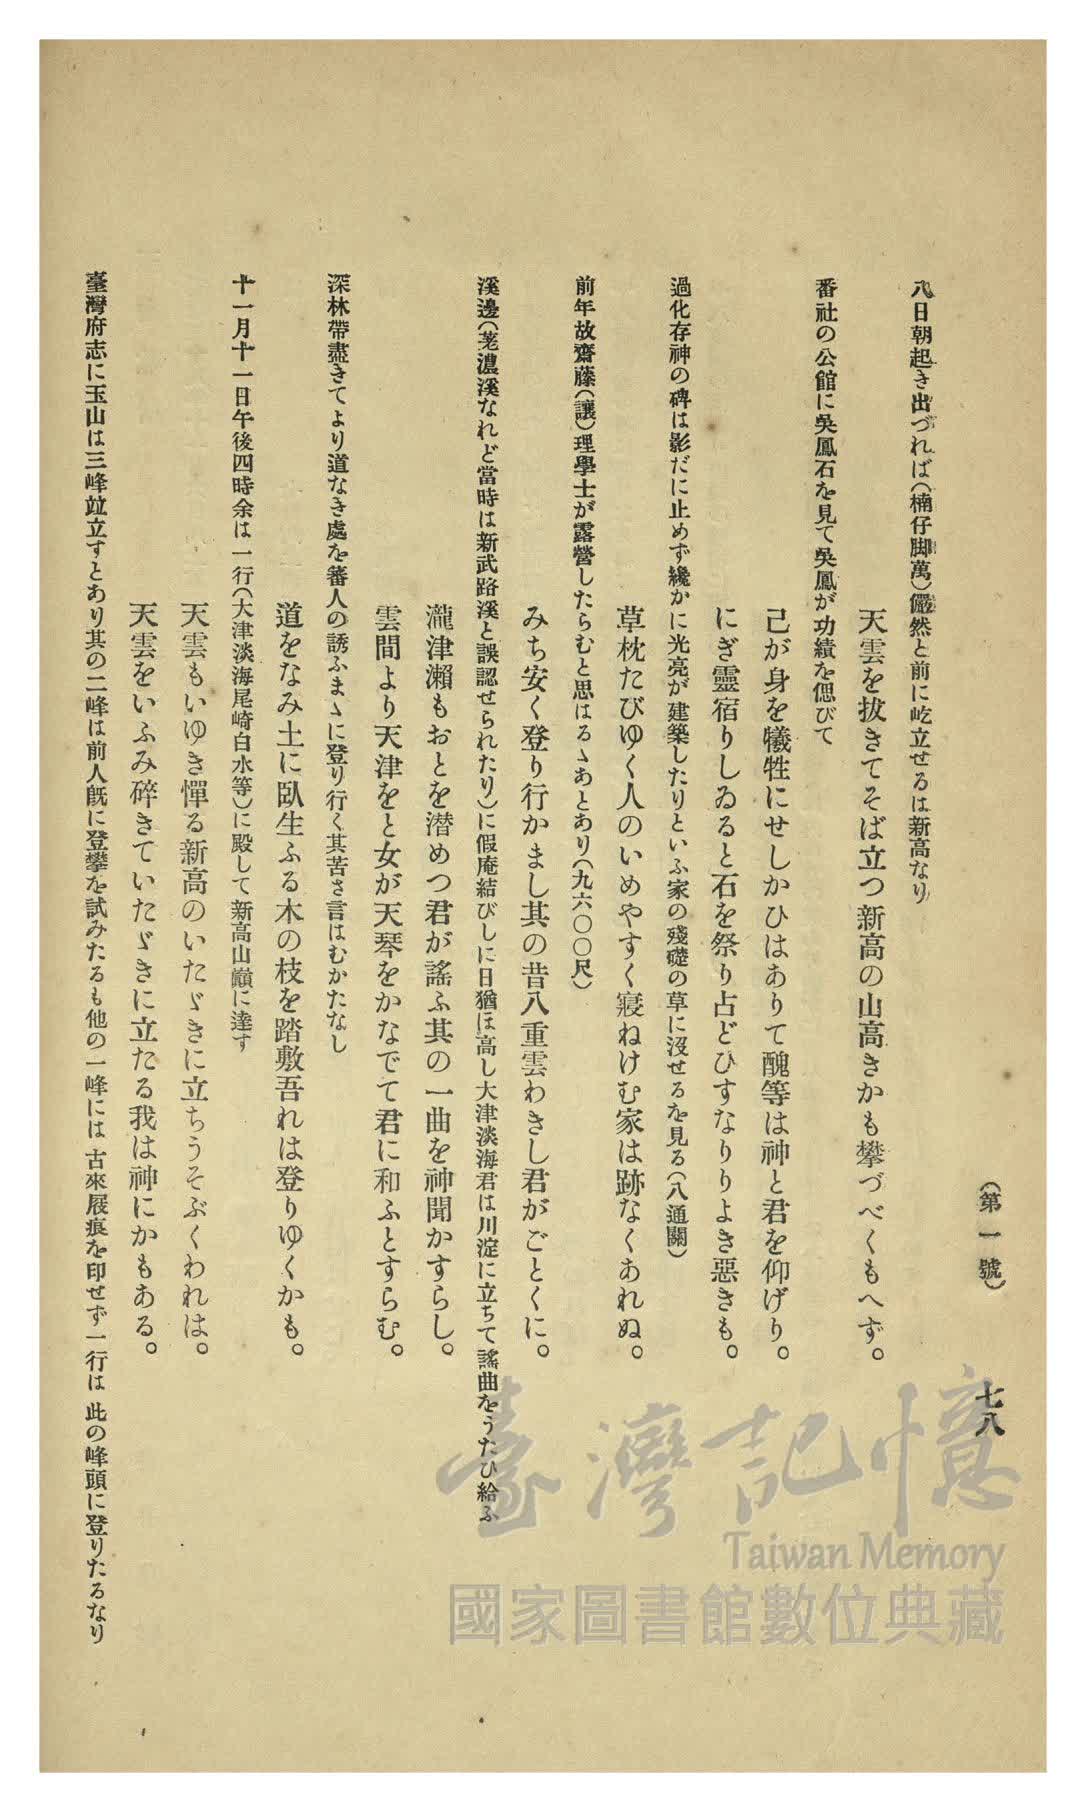 (第一號)
七八
八日朝起き出づれば(楠仔脚萬)儼然と前に屹立せるは新高なり
天雲を抜きてそば立つ新高の山高きかも攀づべくもへず。
番社の公館に吳鳳石を見て吳鳳が功績を偲びて
己が身を犧牲にせしかひはありて醜等は神と君を仰げり。
にぎ靈宿りしゐると石を祭り占どひすなりりよき惡きも。
過化存神の碑は影だに止めず纔かに光亮が建築したりといふ家の殘礎の草に沒せるを見る(八通關)
草枕たびゆく人のいめやすく寢ねけむ家は跡なくあれぬ。
前年故齋藤(讓)理學士が露營したらむと思はるゝあとあり(九六〇〇尺)
みち安く登り行かまし其の昔八重雲わきし君がごとくに。
溪邊(荖濃溪なれど當時は新武路溪と誤認せられたり)に假庵結びしに日猶ほ高し大津淡海君は川淀に立ちて謠曲をうたひ給ふ
瀧津瀨もおとを潜めつ君が謠ふ其の一曲を神聞かすらし。
雲間より天津をと女が天琴をかなでて君に和ふとすらむ。
深林帶盡きてより道なき處を蕃人の誘ふまゝに登り行く其苦さ言はむかたなし
道をなみ土に臥生ふる木の枝を踏敷吾れは登りゆくかも。
十一月十一日午後四時余は一行(大津淡海尾崎白水等)に殿して新高山巓に達す
天雲もいゆき憚る新高のいたゞきに立ちうそぶくわれは。
天雲をいふみ碎きていたゞきに立たる我は神にかもある。
臺灣府志に玉山は三峰竝立すとあり其の二峰は前人既に登攀を試みたるも他の一峰には古來屐痕を印せず一行は此の峰頭に登りたるなり
臺灣記憶
Taiwan Memory
國家圖書館數位典藏